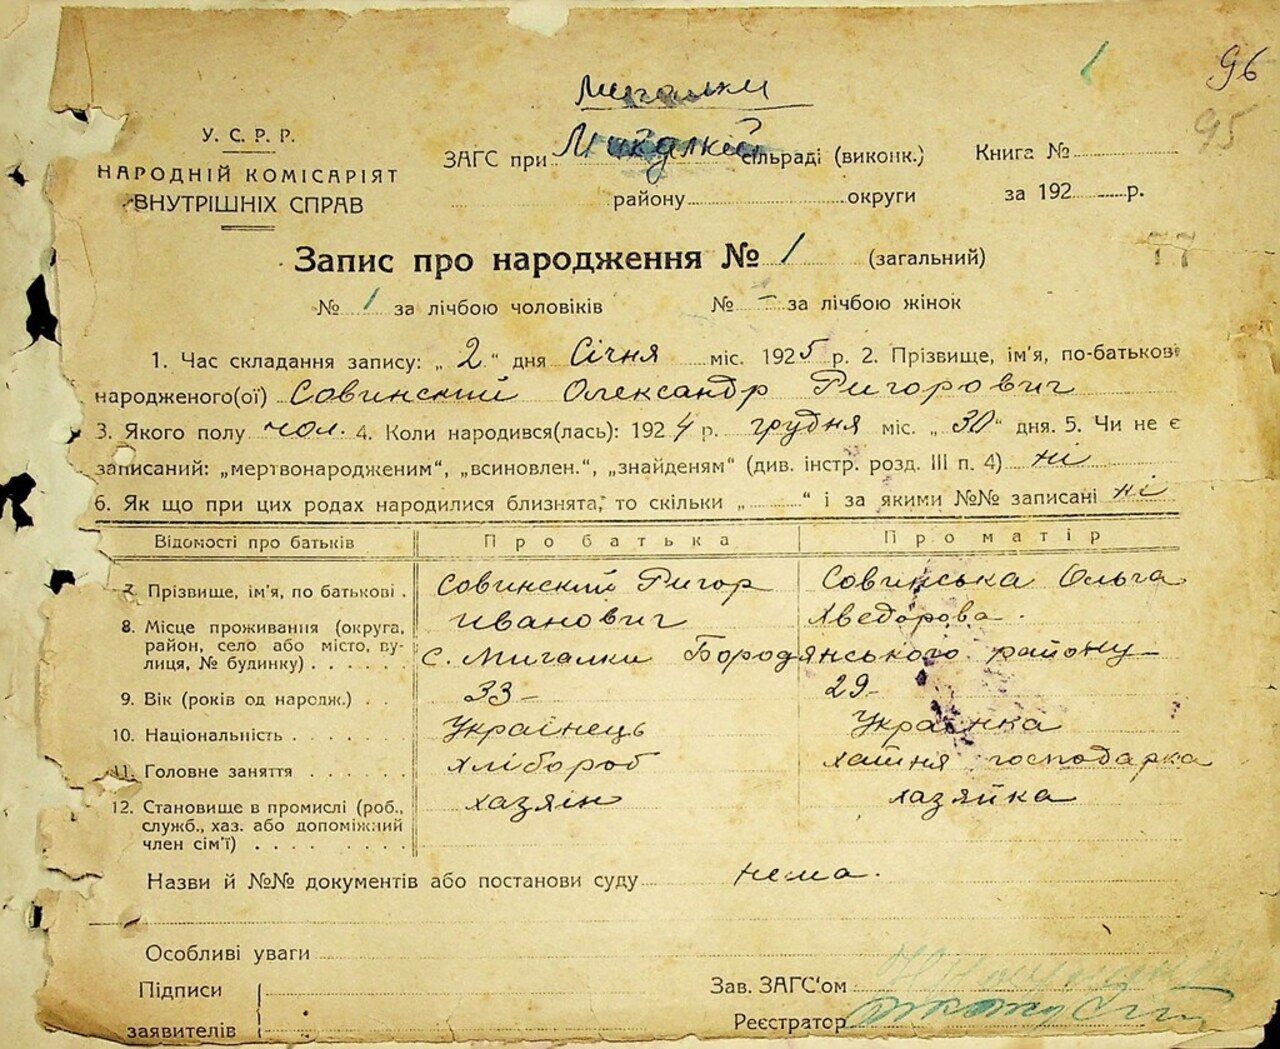 96
95
Мигалки
У. С. Р. Р.
НАРОДНІЙ КОМІСАРІЯТ
ВНУТРІШНІХ СПРАВ
ЗАГС при сільраді (виконк.) Книга №
району округи за 192 р.
77
Запис про народження № 1 (загальний)
№ 1 за лічбою чоловіків № - за лічбою жінок
1. Час складання запису: „ 2 “ дня Січня міс. 1925 р. 2. Прізвище, ім'я, по-батькові
народженого(ої) Совинский Олександр Григорович
3. Якого полу чол. 4. Коли народився(лась): 1924 р. грудня міс. „ 30 “ дня. 5. Чи не є
записаний: „мертвонародженим“, „всиновлен.“, „знайденям“ (див. інстр. розд. III п. 4) ні
6. Як що при цих родах народилися близнята, то скільки „ “ і за якими №№ записані ні
Відомості про батьків Про батька Про матір
7. Прізвище, ім'я, по батькові . Совинский Григор Совинська Ольга
Иванович Хведорова.
8. Місце проживання (округа,
район, село або місто, ву-
лиця, № будинку) . . . . . . с. Мигалки Бородянського району
9. Вік (років од народж.) . . 33- 29-
10. Національність . . . . . . . Українець Українка
11. Головне заняття . . . . . . хлібороб хатня господарка
12. Становище в промислі (роб.,
служб., хаз. або допоміжний
член сім'ї) . . . . . . . . хазяін хазяйка
Назви й №№ документів або постанови суду нема.
Особливі уваги
Підписи
заявителів
Зав. ЗАГС'ом
Реєстратор